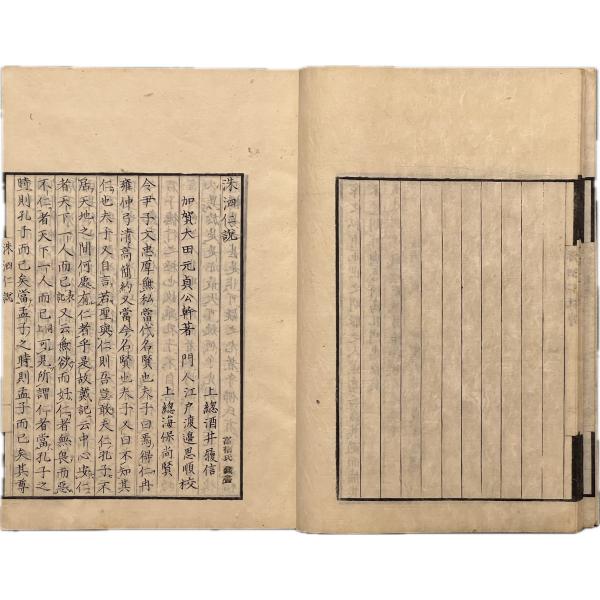 洙泗仁說
上總酒井履信
加賀大田元貞公幹著 門人江戶渡邊思順校
上總海保尚賢
令尹子文忠厚無私當代名賢也夫子曰焉得仁冉
雍仲弓清高簡約又當今名賢也夫子又曰不知其
仁也夫子又自言若聖與仁則吾豈敢夫仁孔子不
居天地之間何處有仁者乎是故戴記云中心安仁
者天下一人而已表記又云無欲而好仁者無畏而惡
不仁者天下一人而已同上可見所謂仁者當孔子之
時則孔子而已矣當孟子之時則孟子而已矣其尊
洙泗仁說